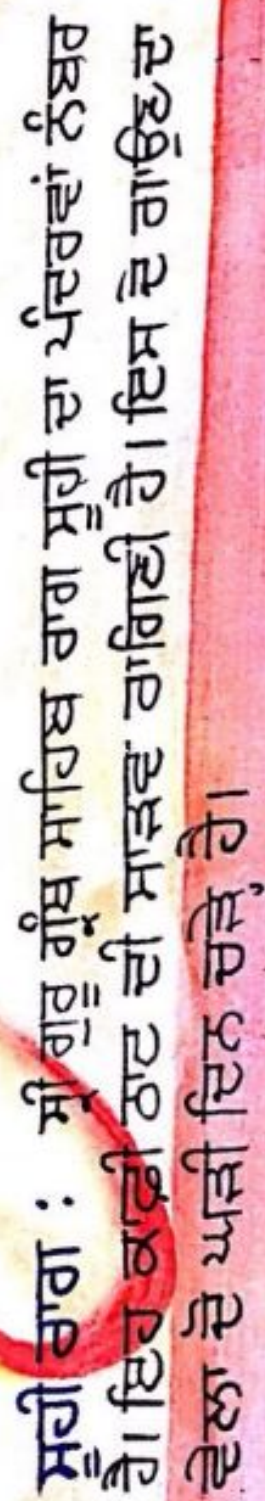 ਸੂਹੀ ਰਾਗ : ਸ੍ਰੀ ਗੁਰੂ ਗ੍ਰੰਥ ਸਾਹਿਬ ਰਾਗ ਸੂਹੀ ਦਾ ਪੰਦਰਵਾਂ ਨੰਬਰ
ਹੈ। ਇਹ ਕਾਫ਼ੀ ਠਾਟ ਦੀ ਸਾੜਵ ਰਾਗਿਣੀ ਹੈ। ਇਸ ਦੇ ਗਾਉਣ ਦਾ
ਵੇਲਾ ਦੋ ਘੜੀ ਦਿਨ ਚੜ੍ਹੇ ਹੈ।